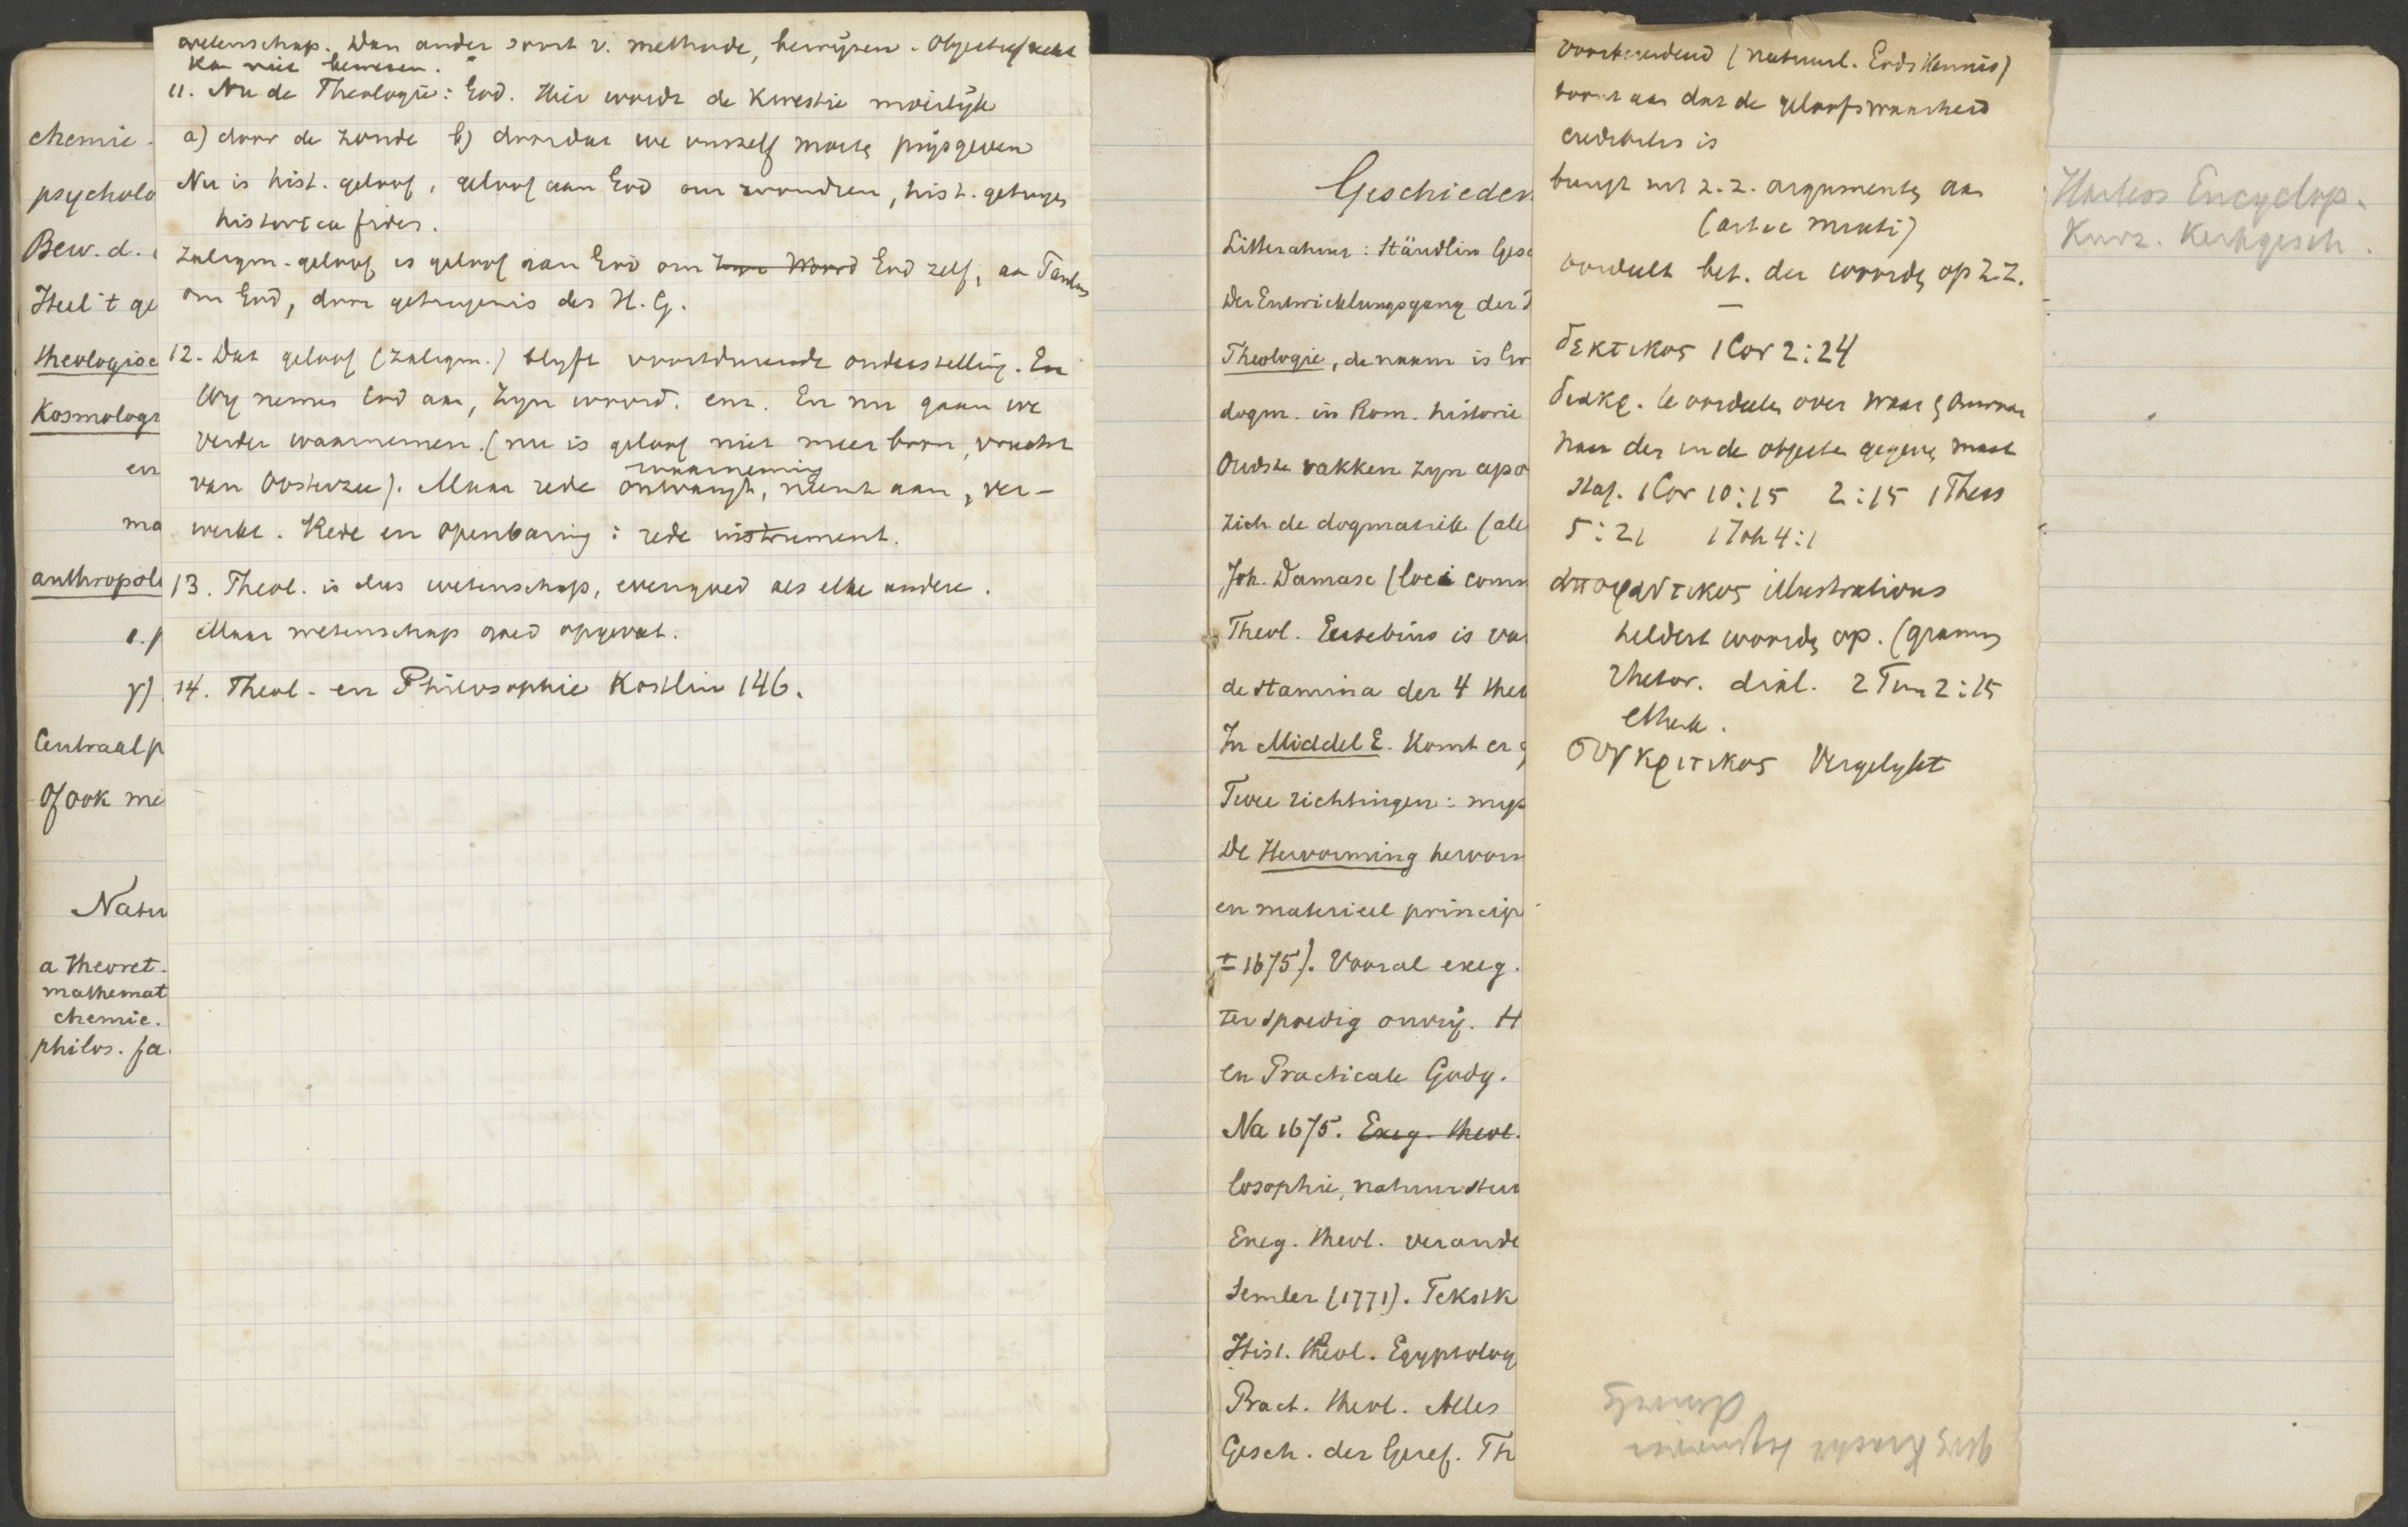 chemie.
psycholo
Bew. d.
Heel 't ge
theologisc
Kosmologi
en
ma
anthropolo
γ)
Centraal p
Of ook me
Natu
a theoret.
mathemat
chemie.
philos. fa
wetenschap. Dan ander soort v. methode, bewijzen. Objectief
kan niet bewezen.
11. Nu de Theologie: God. Hier wordt de Kwestie moeilijk
a) door de zonde b) doordat we onszelf moeten prijsgeven
Nu is hist. geloof, geloof aan God om wonderen, hist. getuigen
historica fides.
Zaligm. geloof is geloof aan God om Zijn Woord God zelf, aan
om God, door getuigenis des H. G.
12. Dat geloof (zaligm.) blyft voortdurende onderstelling. En
Wy nemen God aan, Zyn woord. enz. En nu gaan we
verder waarnemen. (nu is geloof niet meer bron, vrucht
waarneming
van Oosterzee). Maar rede ontvangt, neemt aan, ver-
werkt. Rede en openbaring: rede instrument.
13. Theol. is dus wetenschap, evengoed als elke andere.
Maar wetenschap goed opgevat.
14. Theol. en Philosophie Köstlin 146.
Geschieden
Litteratuur: Stäudlin Gesc
Der Entwicklungsgang der T
Theologie, de naam is Gr
dogm. in Rom. historie
Oudste vakken zyn apo
zich de dogmatiek (ale
Joh. Damasc (loci comm
Theol. Eusebius is va
de stamina der 4 theo
In Middel E. Komt er g
Twee richtingen: mys
De Hervorming hervorm
en materieel princip
± 1675). Vooral exeg.
ter spoedig onvrij. H
en Practicale Godg.
Na 1675. Exeg. theol.
losophie, natuurstu
Exeg. theol. verande
Semler (1771). Tekstk
Hist. theol. Egyptolog
Pract. theol. Alles
Gesch. der Geref. Th
voorbereidend (natuurl. Godskennis)
toont aan dat de geloofswaarheid
credibilis is
brengt uit z.z. argumenten aan
oordeelt bet. der woorden op z.z.
—
δεκτικος 1 Cor 2:24
διακρ. beoordeelen over waar en onwaar
naar der in de objecten gegeven maat
staf. 1 Cor 10:15 2:15 1 Thess
5:21 1 Joh 4:1
αποφαντικος illustrativus
heldert woorden op. (gramm
rhetor. dial. 2 Tim 2:15
συγκριτικος Vergelykt
Harless Encyclop.
Kurz. Kerkgesch.